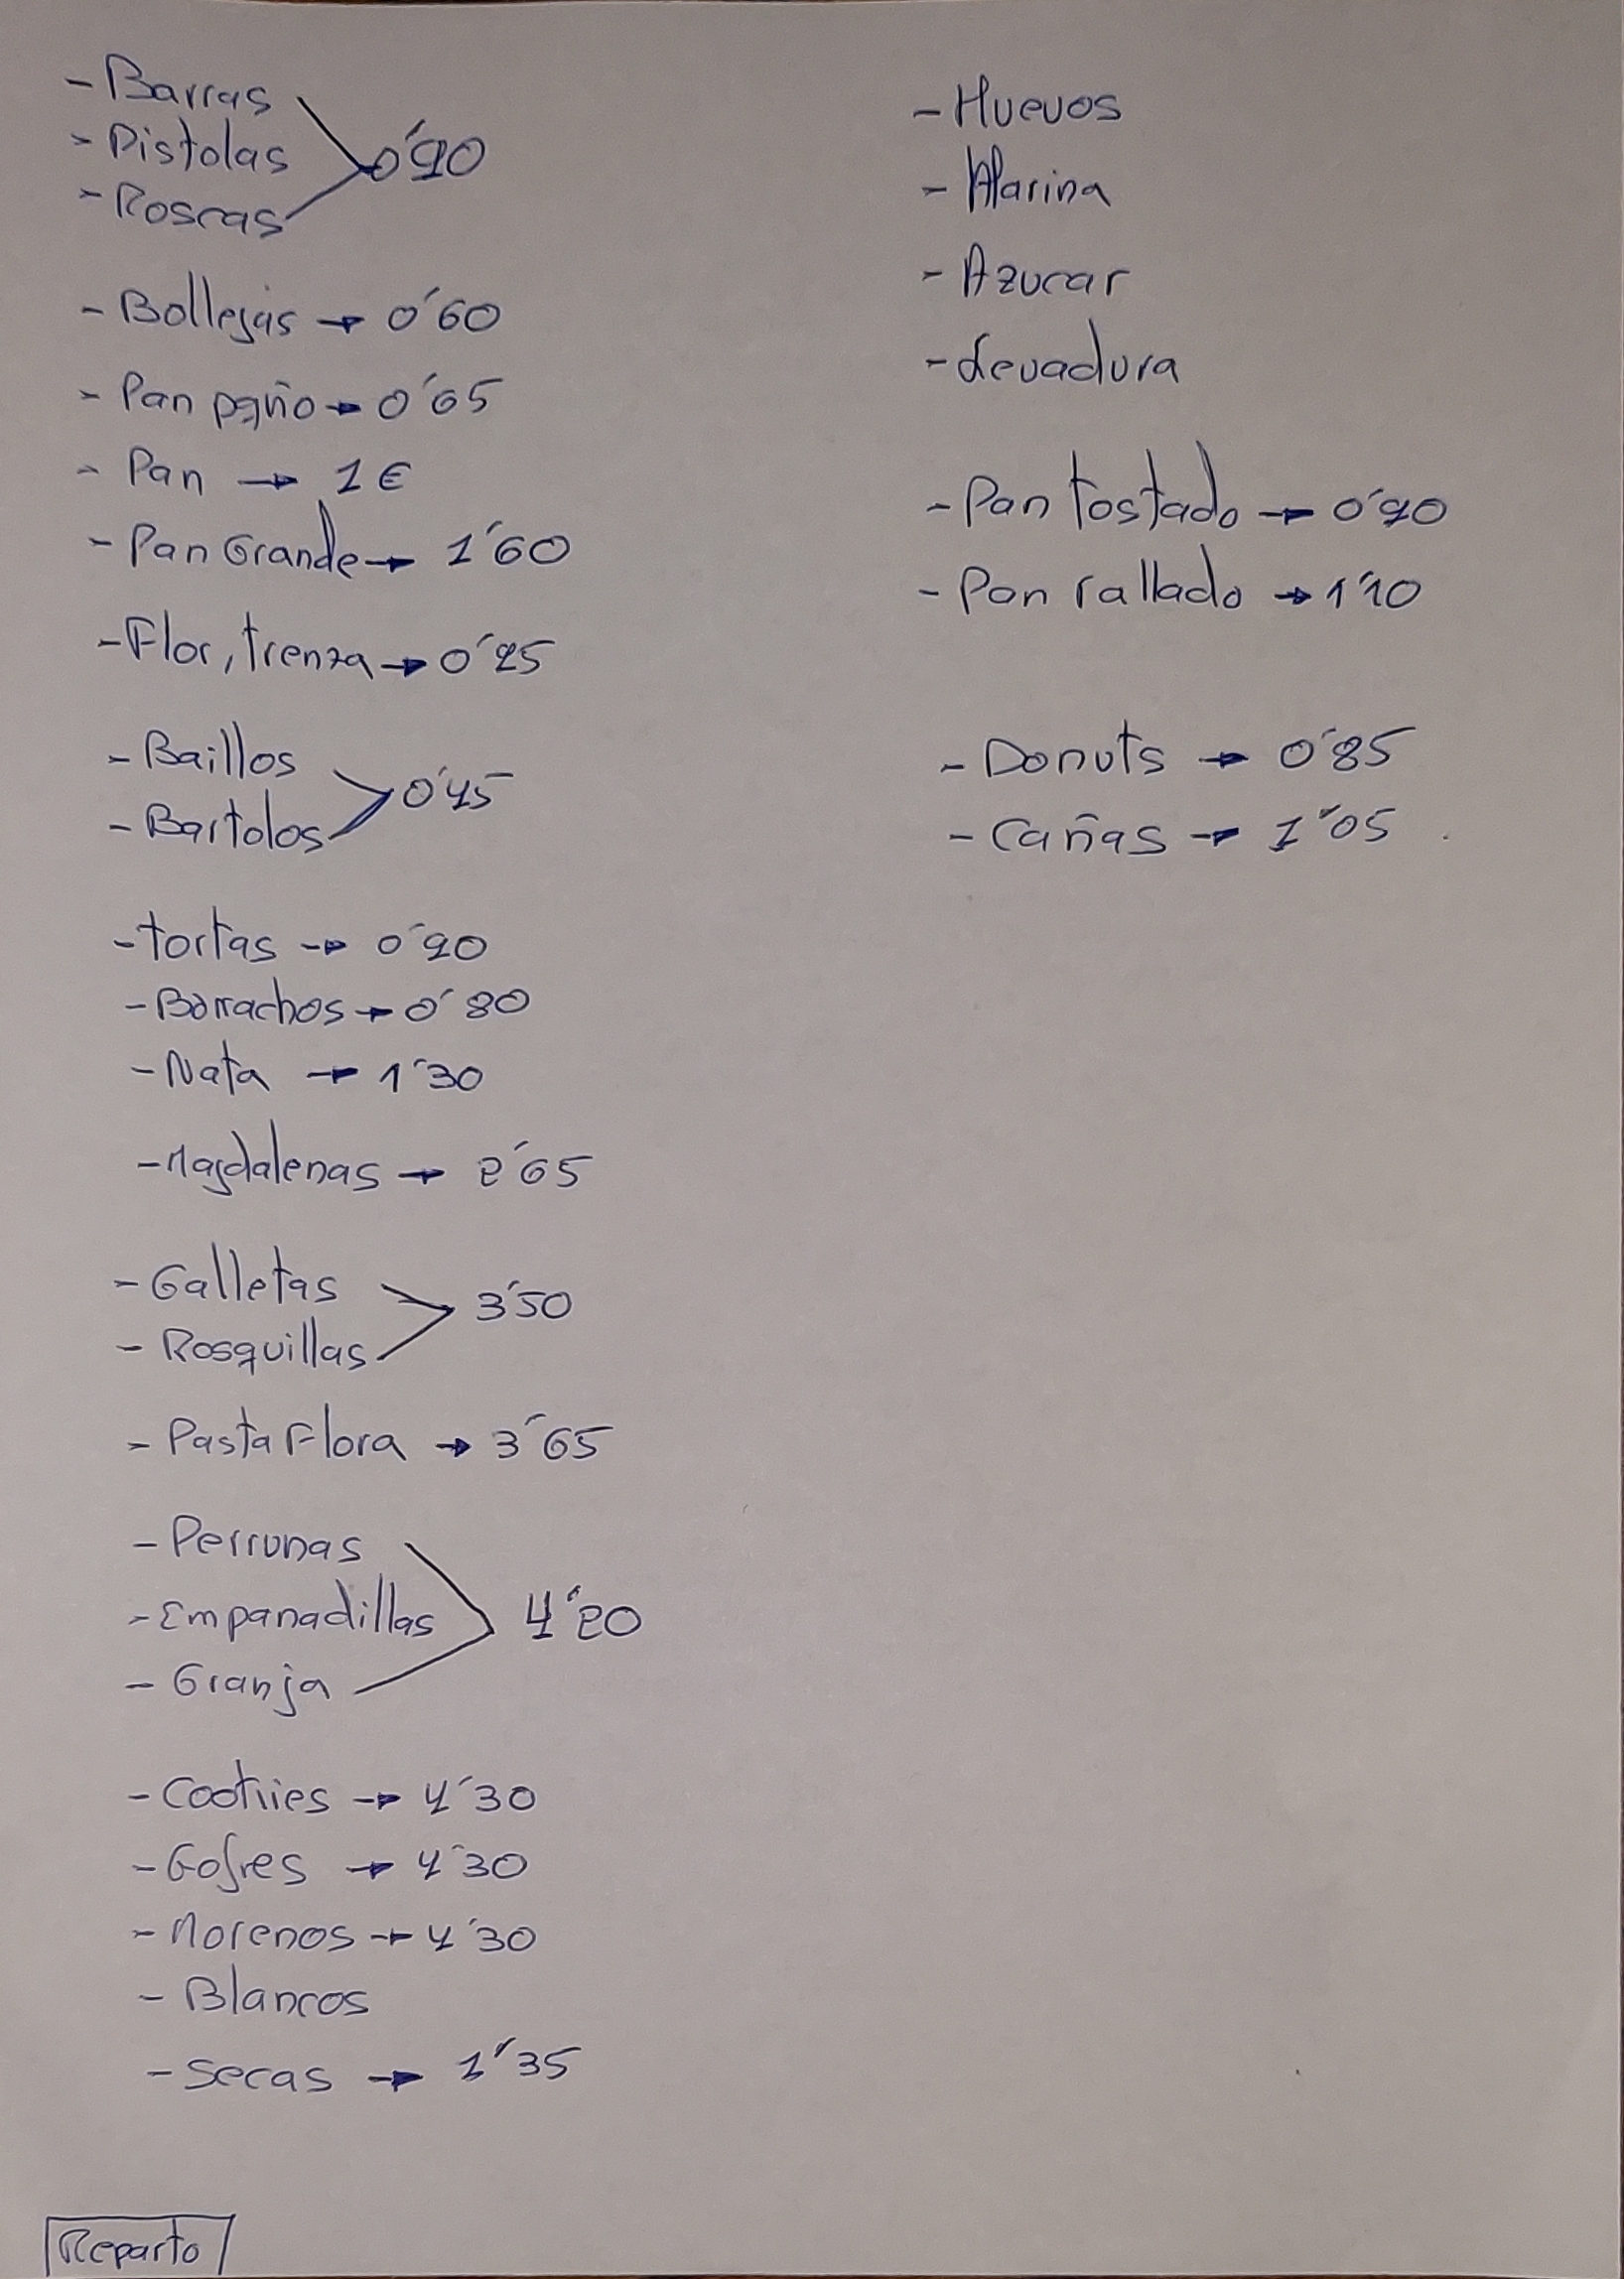 - Barras
- Pistolas
- Roscas
0'90
- Bollejas → 0'60
- Pan pqño → 0'65
- Pan → 1€
- Pan Grande → 1'60
- Flor, trenza → 0'25
- Baillos
- Bartolos
0'45
- Tortas → 0'90
- Borrachos → 0'80
- Nata → 1'30
- Magdalenas → 2'65
- Galletas
- Rosquillas
3'50
- Pasta Flora → 3'65
- Perrunas
- Empanadillas
- Granja
4'20
- Cookies → 4'30
- Gofres → 4'30
- Morenos → 4'30
- Blancos
- Secas → 1'35
Reparto
- Huevos
- Harina
- Azucar
- Levadura
- Pan tostado → 0'90
- Pan rallado → 1'10
- Donuts → 0'85
- Cañas → 1'05